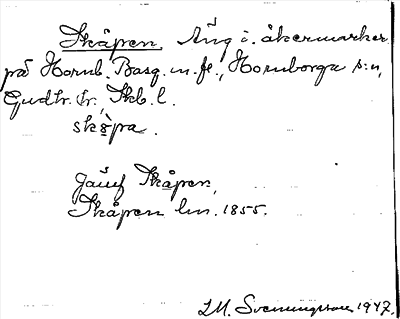 Skåpen. Äng i åkermarker
på Hornb. Basg. m. fl., Hornborga s:n,
Gudh. hr, Skb. l.
Jämf Skåpen,
Skåpen lm. 1855.
I.M. Svenningsson 1947.